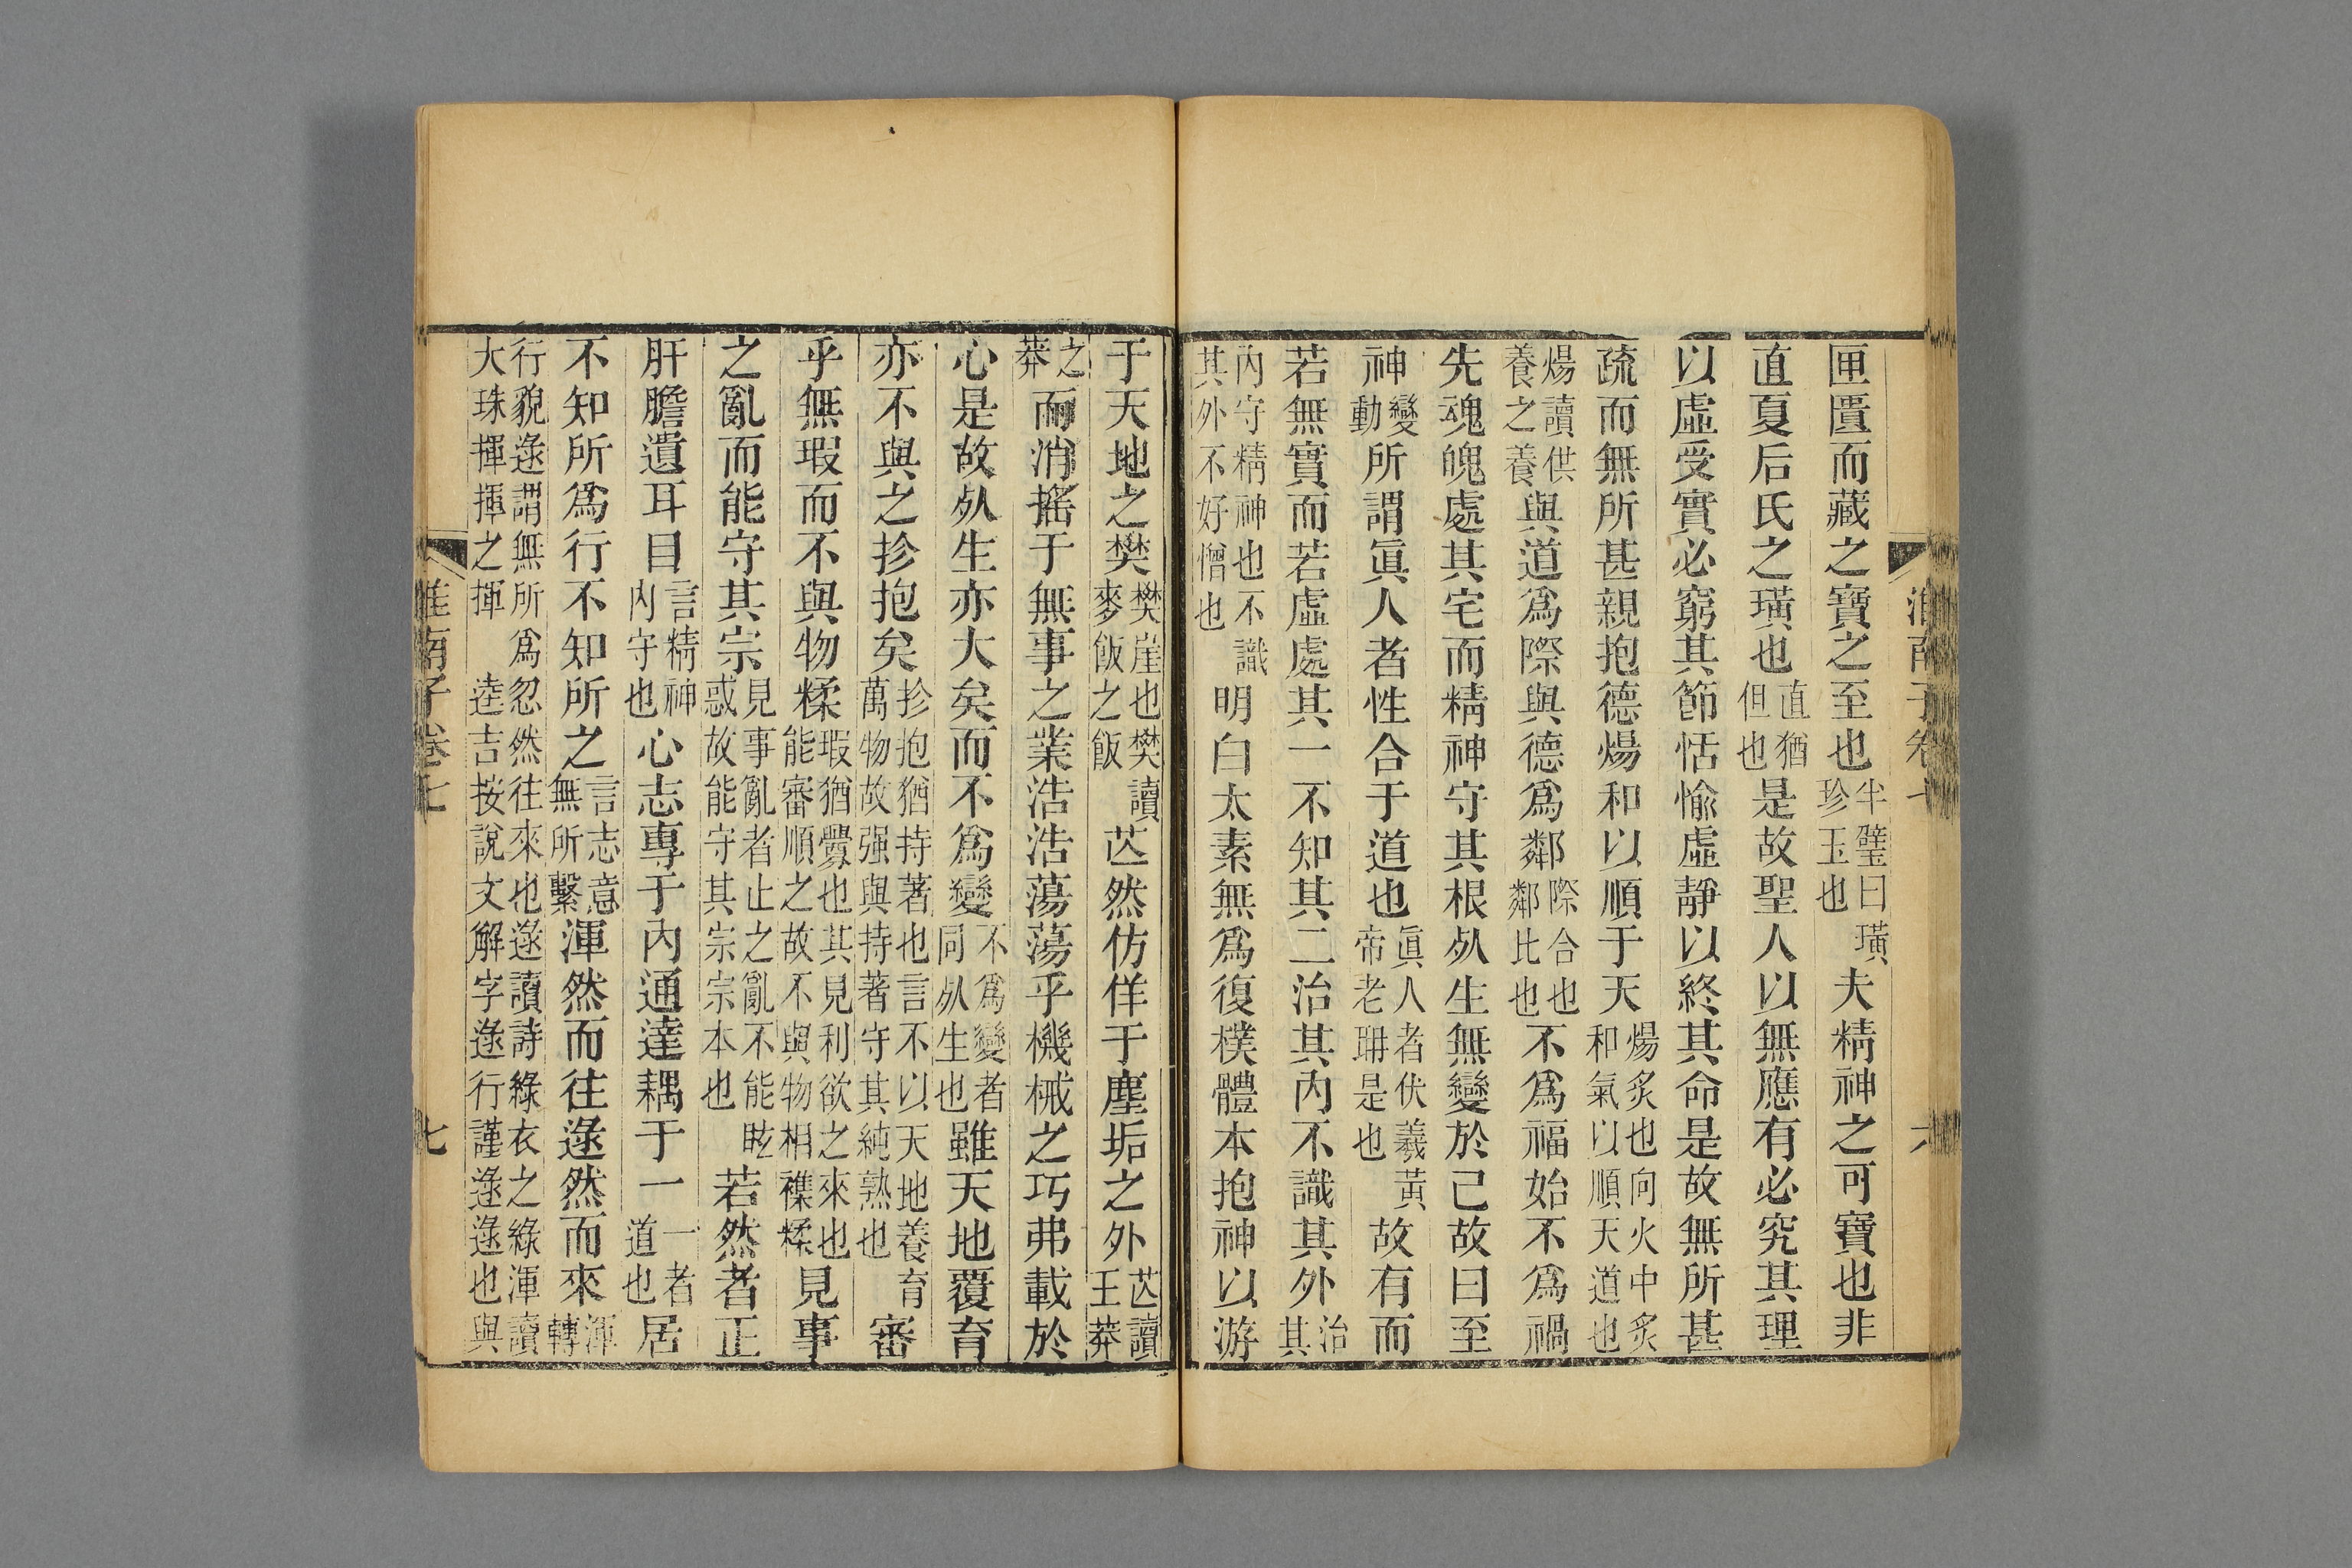 匣匱而藏之寶之至也半璧曰璜珍玉也夫精神之可寶也非
直夏后氏之璜也直猶但也是故聖人以無應有必究其理
以虛受實必窮其節恬愉虛靜以終其命是故無所甚
疏而無所甚親抱德煬和以順于天煬炙也向火中炙和氣以順天道也
煬讀供養之養與道爲際與德爲鄰際合也鄰比也不爲福始不爲禍
先魂魄處其宅而精神守其根死生無變於己故曰至
神變動所謂眞人者性合于道也眞人者伏羲黃帝老聃是也故有而
若無實而若虛處其一不知其二治其內不識其外治其
內守精神也不識其外不好憎也明白太素無爲復樸體本抱神以游
于天地之樊樊崖也樊讀麥飯之飯芒然仿佯于塵垢之外芒讀王莽
之莽而消搖于無事之業浩浩蕩蕩乎機械之巧弗載於
心是故死生亦大矣而不爲變不爲變者同死生也雖天地覆育
亦不與之抮抱矣抮抱猶持著也言不以天地養育萬物故强與持著守其純熟也審
乎無瑕而不與物糅瑕猶釁也其見利欲之來也能審順之故不與物相襍糅見事
之亂而能守其宗見事亂者止之亂不能眩惑故能守其宗宗本也若然者正
肝膽遺耳目言精神內守也心志專于內通達耦于一一者道也居
不知所爲行不知所之言志意無所繫渾然而往逯然而來渾轉
行貌逯謂無所爲忽然往來也逯讀詩綠衣之綠渾讀大珠揮揮之揮 逵吉按說文解字逯行謹逯逯也與
淮南子卷七
七